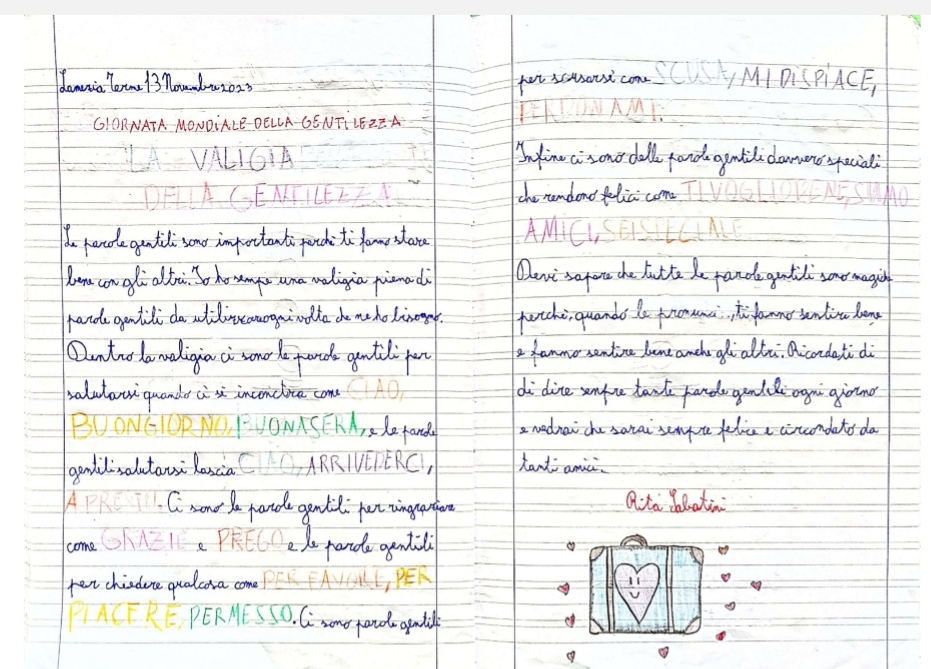 Lamezia Terme 13 Novembre 2023
GIORNATA MONDIALE DELLA GENTILEZZA
LA VALIGIA
DELLA GENTILEZZA
Le parole gentili sono importanti perché ti fanno stare
bene con gli altri. Io ho sempre una valigia piena di
parole gentili da utilizzare ogni volta che ne ho bisogno.
Dentro la valigia ci sono le parole gentili per
salutarsi quando ci si incontra come CIAO,
BUONGIORNO, BUONASERA, e le parole
gentili salutarsi lascia CIAO, ARRIVEDERCI,
A PRESTO. Ci sono le parole gentili per ringraziare
come GRAZIE e PREGO e le parole gentili
per chiedere qualcosa come PER FAVORE, PER
PIACERE, PERMESSO. Ci sono parole gentili
per scusarsi come SCUSA, MI DISPIACE,
PERDONAMI.
Infine ci sono delle parole gentili davvero speciali
che rendono felici come TI VOGLIO BENE, SIAMO
AMICI, SEI SPECIALE
Devi sapere che tutte le parole gentili sono magiche
perché, quando le pronunci, ti fanno sentire bene
e fanno sentire bene anche gli altri. Ricordati di
di dire sempre tante parole gentili ogni giorno
e vedrai che sarai sempre felice e circondato da
tanti amici.
Rita Sabatini